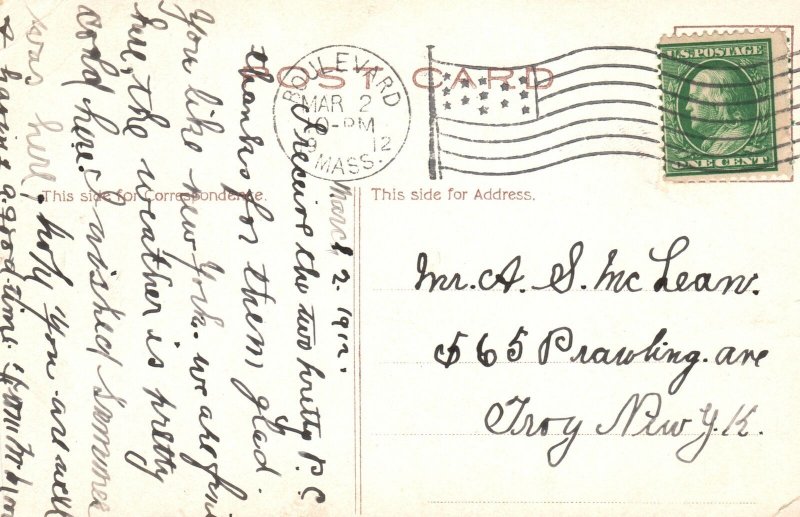 POST CARD
BOULEVARD
MAR 2
10-PM
12
MASS.
U.S. POSTAGE
ONE CENT
This side for Correspondence.
This side for Address.
March 2. 1912.
I receive the two pretty P.C
thanks for them glad.
You like New York. we are fine
here, the weather is pretty
cold here. I wished summer
was here. hope you are well
& having a good time. from
Mr. A. S. McLean.
565 Prawling. ave
Troy New Y.K.